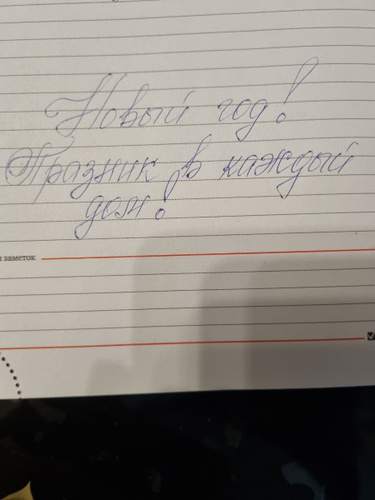 Новый год!
Празник в каждый
дом!
заметок